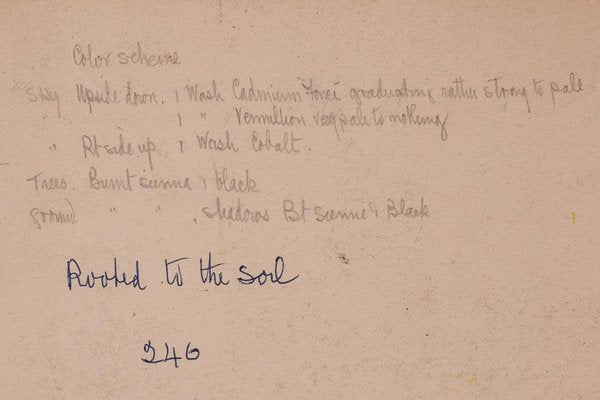 Color scheme
Sky Upside down. 1 Wash Cadmium graduating rather strong to pale
" " 1 " Vermillion very pale to nothing
" Rt side up 1 Wash Cobalt.
Trees. Burnt sienna & black
ground " " . Shadows Bt Sienne & Black
Rooted to the soil
246